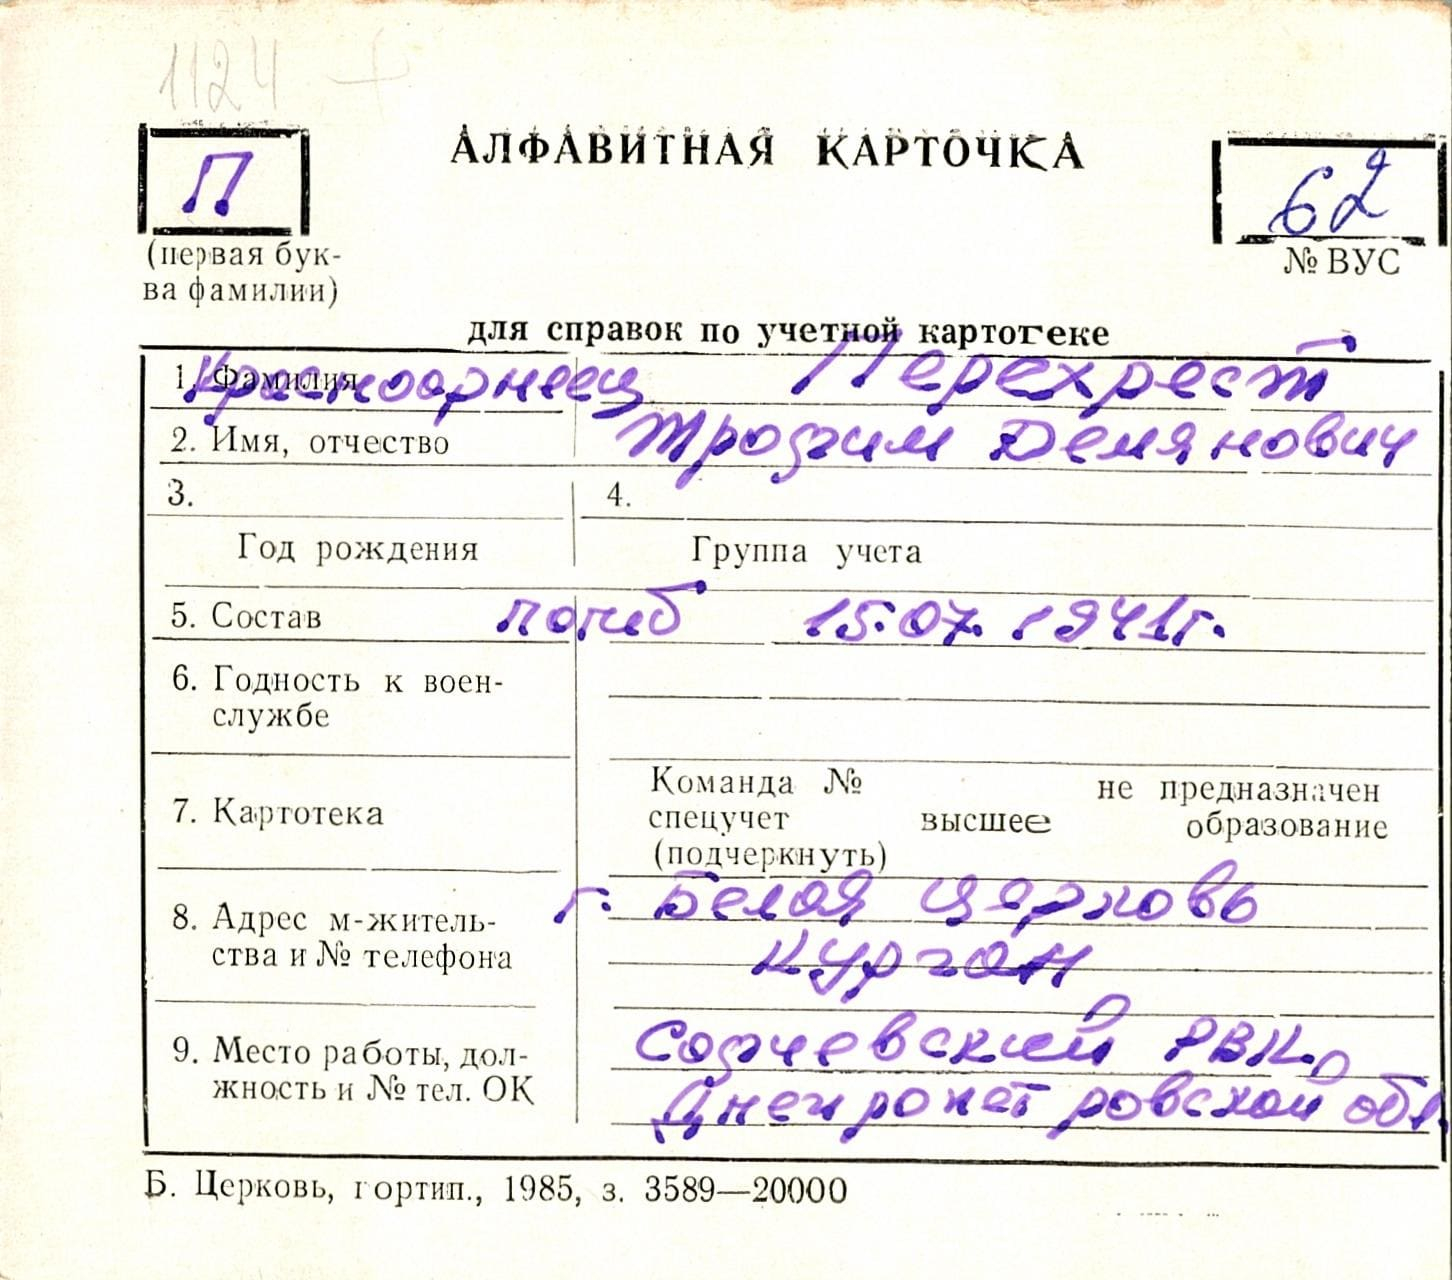 1124 +
П
АЛФАВИТНАЯ КАРТОЧКА
62
(первая бук-
ва фамилии)
№ ВУС
для справок по учетной картотеке
1. Фамилия Красноармеец Перехрест
2. Имя, отчество Трофим Демянович
3. 4.
Год рождения Группа учета
5. Состав погиб 15.07.1941г.
6. Годность к воен-
службе
7. Картотека
Команда № не предназначен
спецучет высшее образование
(подчеркнуть)
8. Адрес м-житель-
ства и № телефона
г. Белая Церковь
Курган
9. Место работы, дол-
жность и № тел. ОК
РВК,
Днепропетровской обл.
Б. Церковь, гортип., 1985, з. 3589—20000